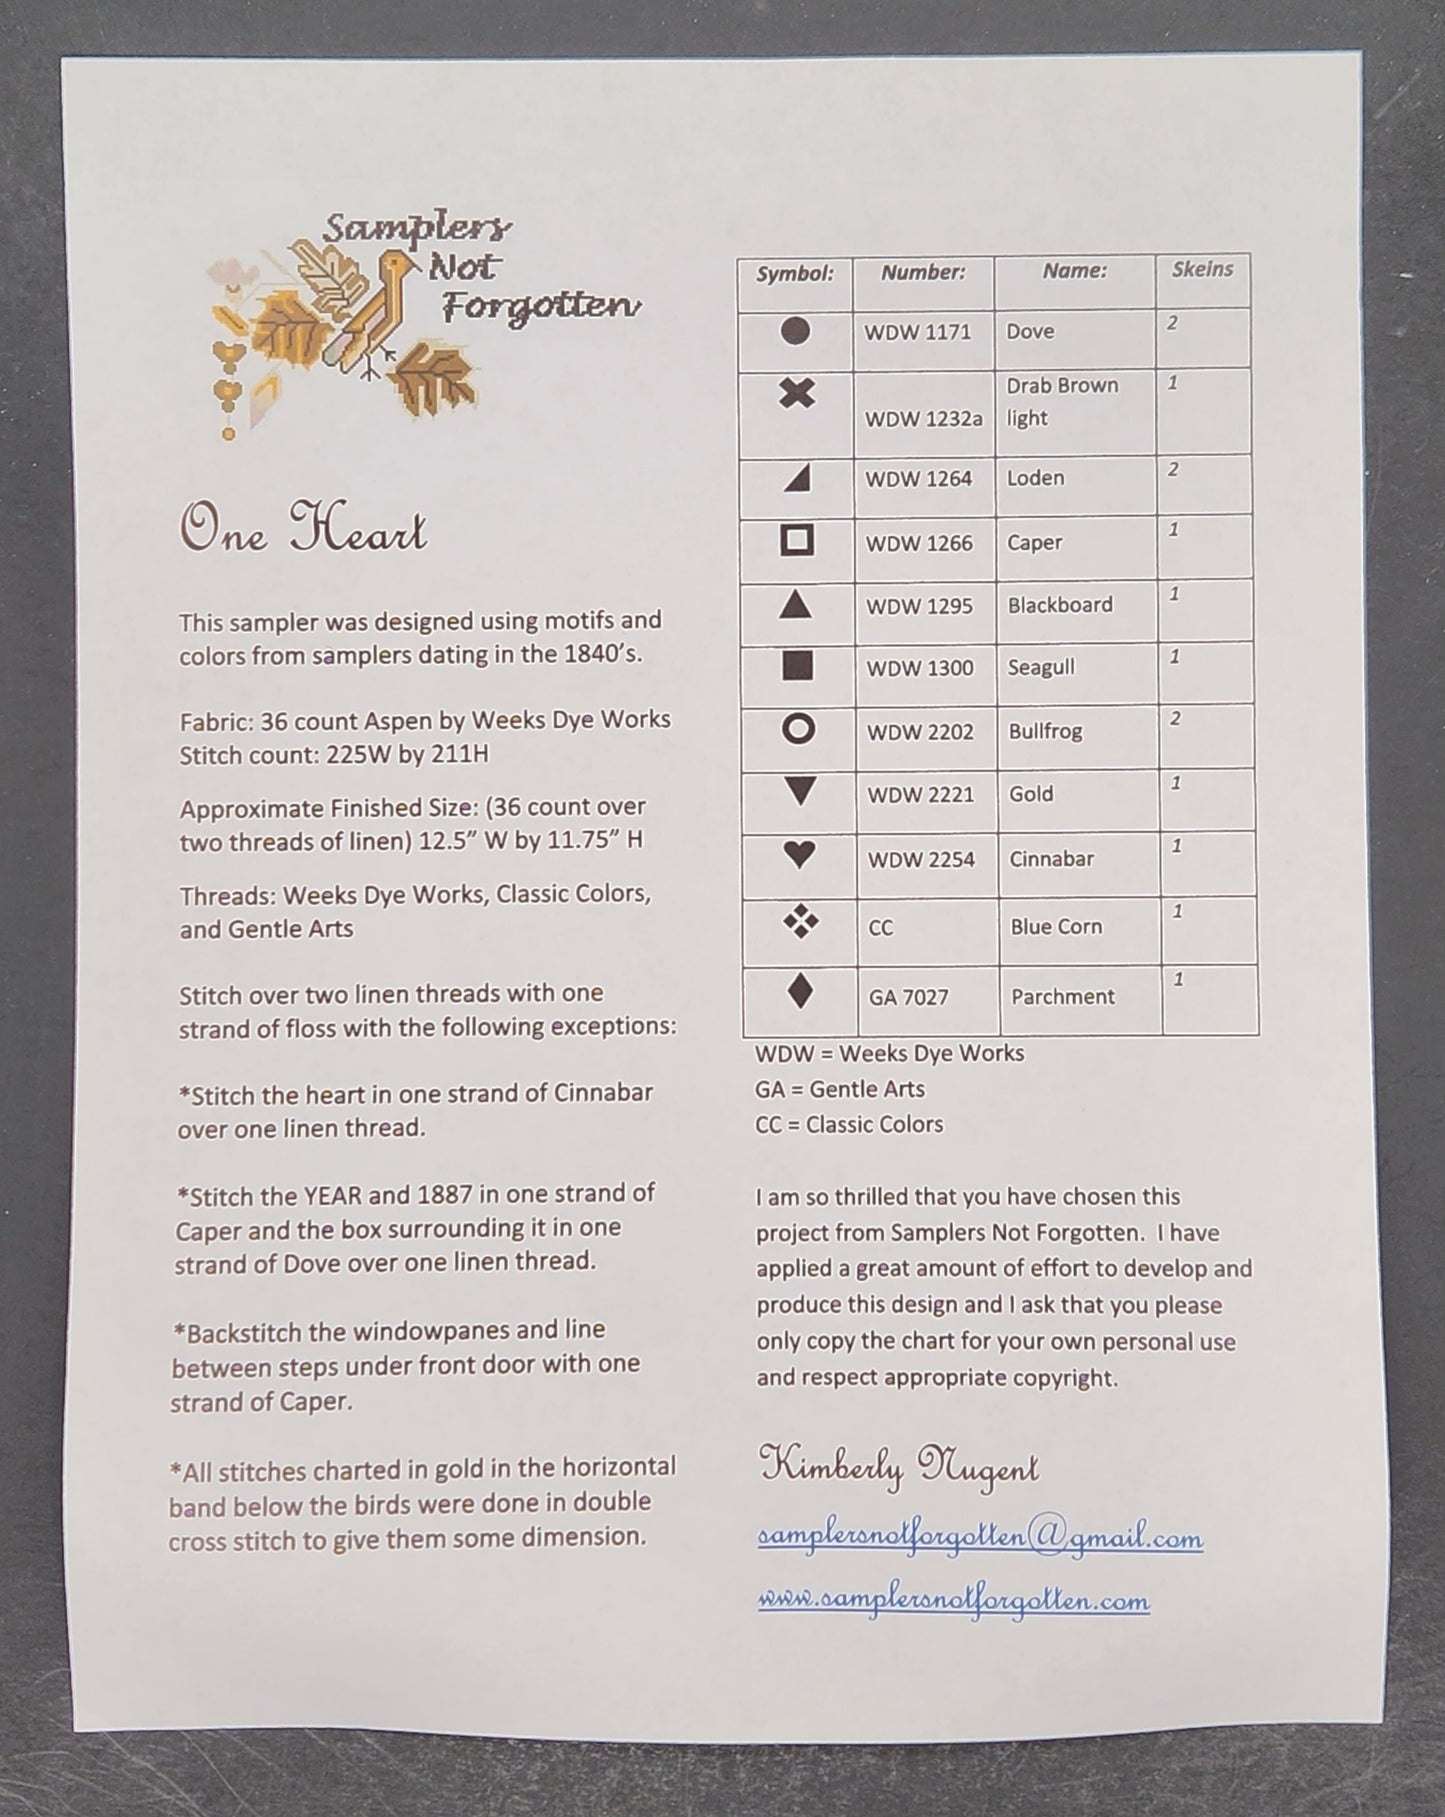 Samplers
Not
Forgotten
One Heart
This sampler was designed using motifs and
colors from samplers dating in the 1840's.
Fabric: 36 count Aspen by Weeks Dye Works
Stitch count: 225W by 211H
Approximate Finished Size: (36 count over
two threads of linen) 12.5" W by 11.75" H
Threads: Weeks Dye Works, Classic Colors,
and Gentle Arts
Stitch over two linen threads with one
strand of floss with the following exceptions:
*Stitch the heart in one strand of Cinnabar
over one linen thread.
*Stitch the YEAR and 1887 in one strand of
Caper and the box surrounding it in one
strand of Dove over one linen thread.
*Backstitch the windowpanes and line
between steps under front door with one
strand of Caper.
*All stitches charted in gold in the horizontal
band below the birds were done in double
cross stitch to give them some dimension.
Symbol: Number: Name: Skeins
WDW 1171 Dove 2
WDW 1232a Drab Brown 1
light
WDW 1264 Loden 2
WDW 1266 Caper 1
WDW 1295 Blackboard 1
WDW 1300 Seagull 1
WDW 2202 Bullfrog 2
WDW 2221 Gold 1
WDW 2254 Cinnabar 1
CC Blue Corn 1
GA 7027 Parchment 1
WDW = Weeks Dye Works
GA = Gentle Arts
CC = Classic Colors
I am so thrilled that you have chosen this
project from Samplers Not Forgotten. I have
applied a great amount of effort to develop and
produce this design and I ask that you please
only copy the chart for your own personal use
and respect appropriate copyright.
Kimberly Nugent
samplersnotforgotten@gmail.com
www.samplersnotforgotten.com